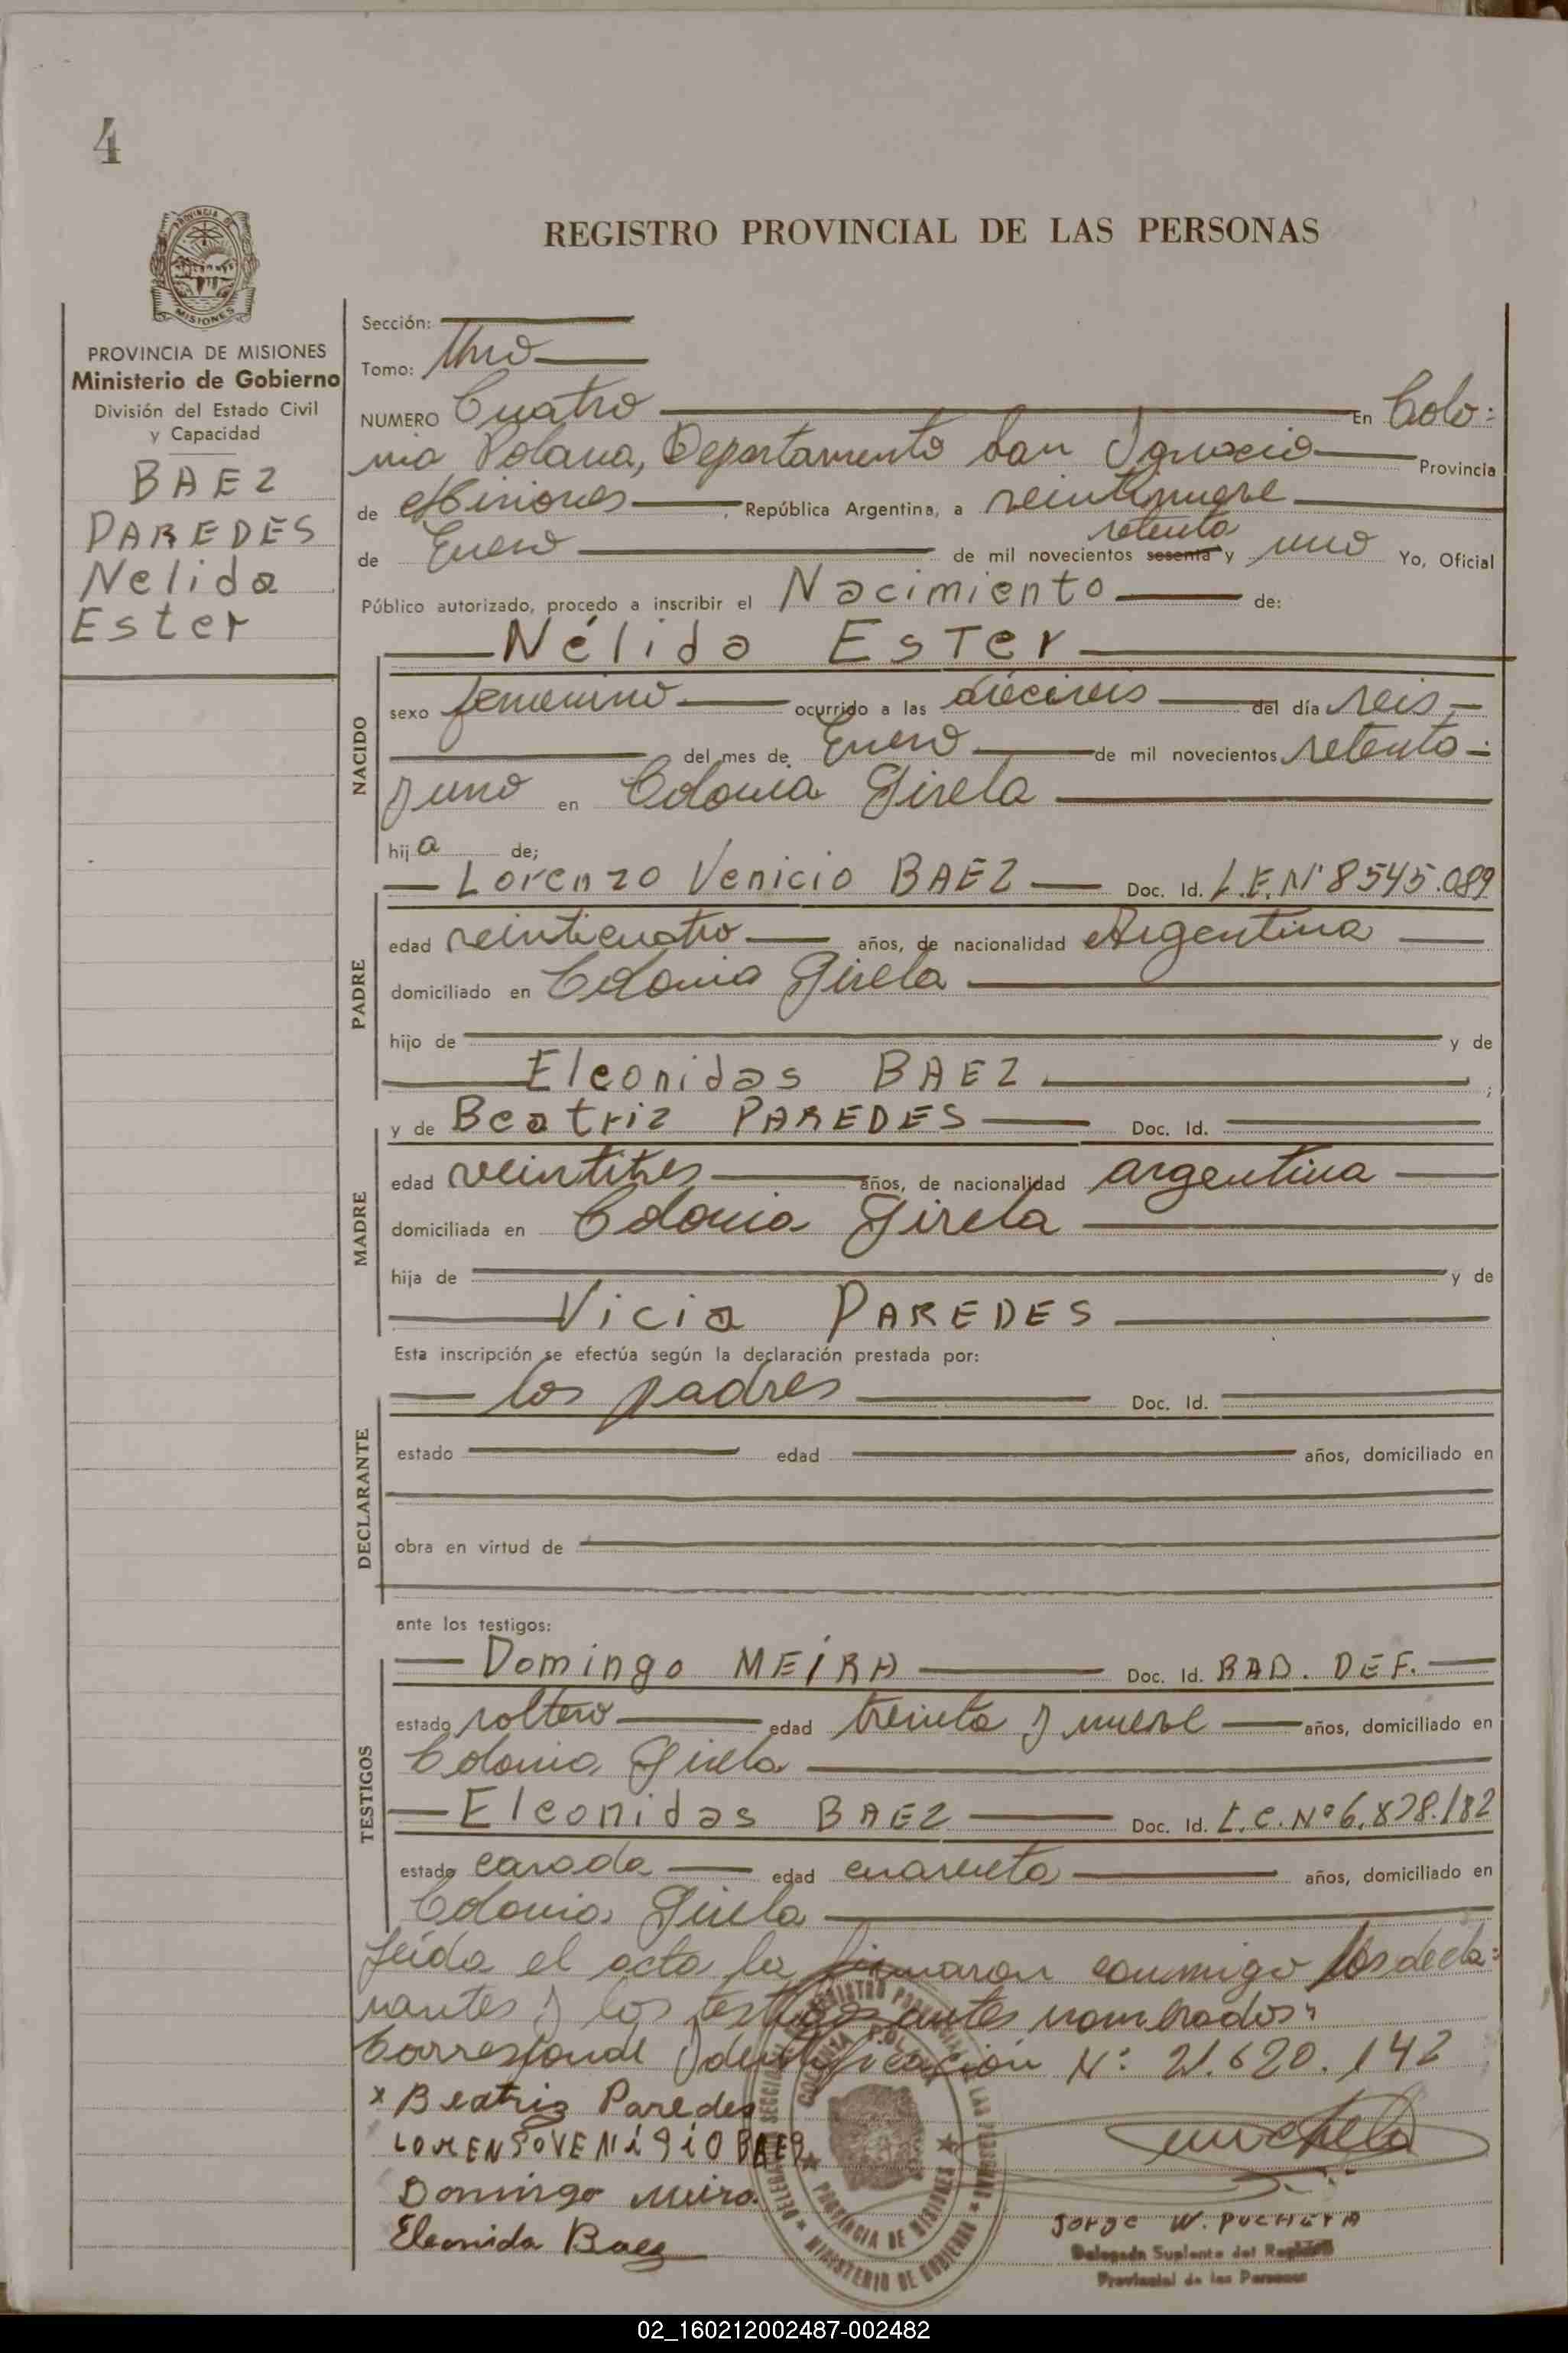 4
PROVINCIA DE
MISIONES
PROVINCIA DE MISIONES
Ministerio de Gobierno
División del Estado Civil
y Capacidad
BAEZ
PAREDES
Nelida
Ester
REGISTRO PROVINCIAL DE LAS PERSONAS
Sección:
Tomo: Uno
NUMERO Cuatro En Colo=
nia Polana, Departamento San Ignacio Provincia
de Misiones República Argentina, a veintinueve
setenta
de Enero de mil novecientos sesenta y uno Yo, Oficial
Público autorizado, procedo a inscribir el Nacimiento de:
Nélida Ester
NACIDO
sexo femenino ocurrido a las dieciseis del día seis
del mes de Enero de mil novecientos setenta=
y uno en Colonia Gisela
hija de;
Lorenzo Venicio BAEZ Doc. Id. L.E.Nº 8545.089
PADRE
edad veinticuatro años, de nacionalidad Argentina
domiciliado en Colonia Gisela
hijo de y de
Eleonidas BAEZ ;
y de Beatriz PAREDES Doc. Id.
MADRE
edad veintitres años, de nacionalidad argentina
domiciliada en Colonia Gisela
hija de y de
Vicia PAREDES
Esta inscripción se efectúa según la declaración prestada por:
los padres Doc. Id.
DECLARANTE
estado edad años, domiciliado en
obra en virtud de
ante los testigos:
Domingo MEIRA Doc. Id. RAD. DEF.
TESTIGOS
estado soltero edad treinta y nueve años, domiciliado en
Colonia Gisela
Eleonidas BAEZ Doc. Id. L.C. Nº 6.828.182
estado casada edad cuarenta años, domiciliado en
Colonia Gisela
Leida el acta la firmaron conmigo los decla=
rantes y los testigos antes nombrados"
Corresponde Identificación Nº 21.620.142
x Beatriz Paredes
LORENSO VENISIO BAEZ
Domingo Meira
Eleonida Baez
PROVINCIA DE MISIONES
MINISTERIO DE GOBIERNO
Jorge W. PUCHETA
Delegado Suplente del Registro
Provincial de las Personas
02_160212002487-002482